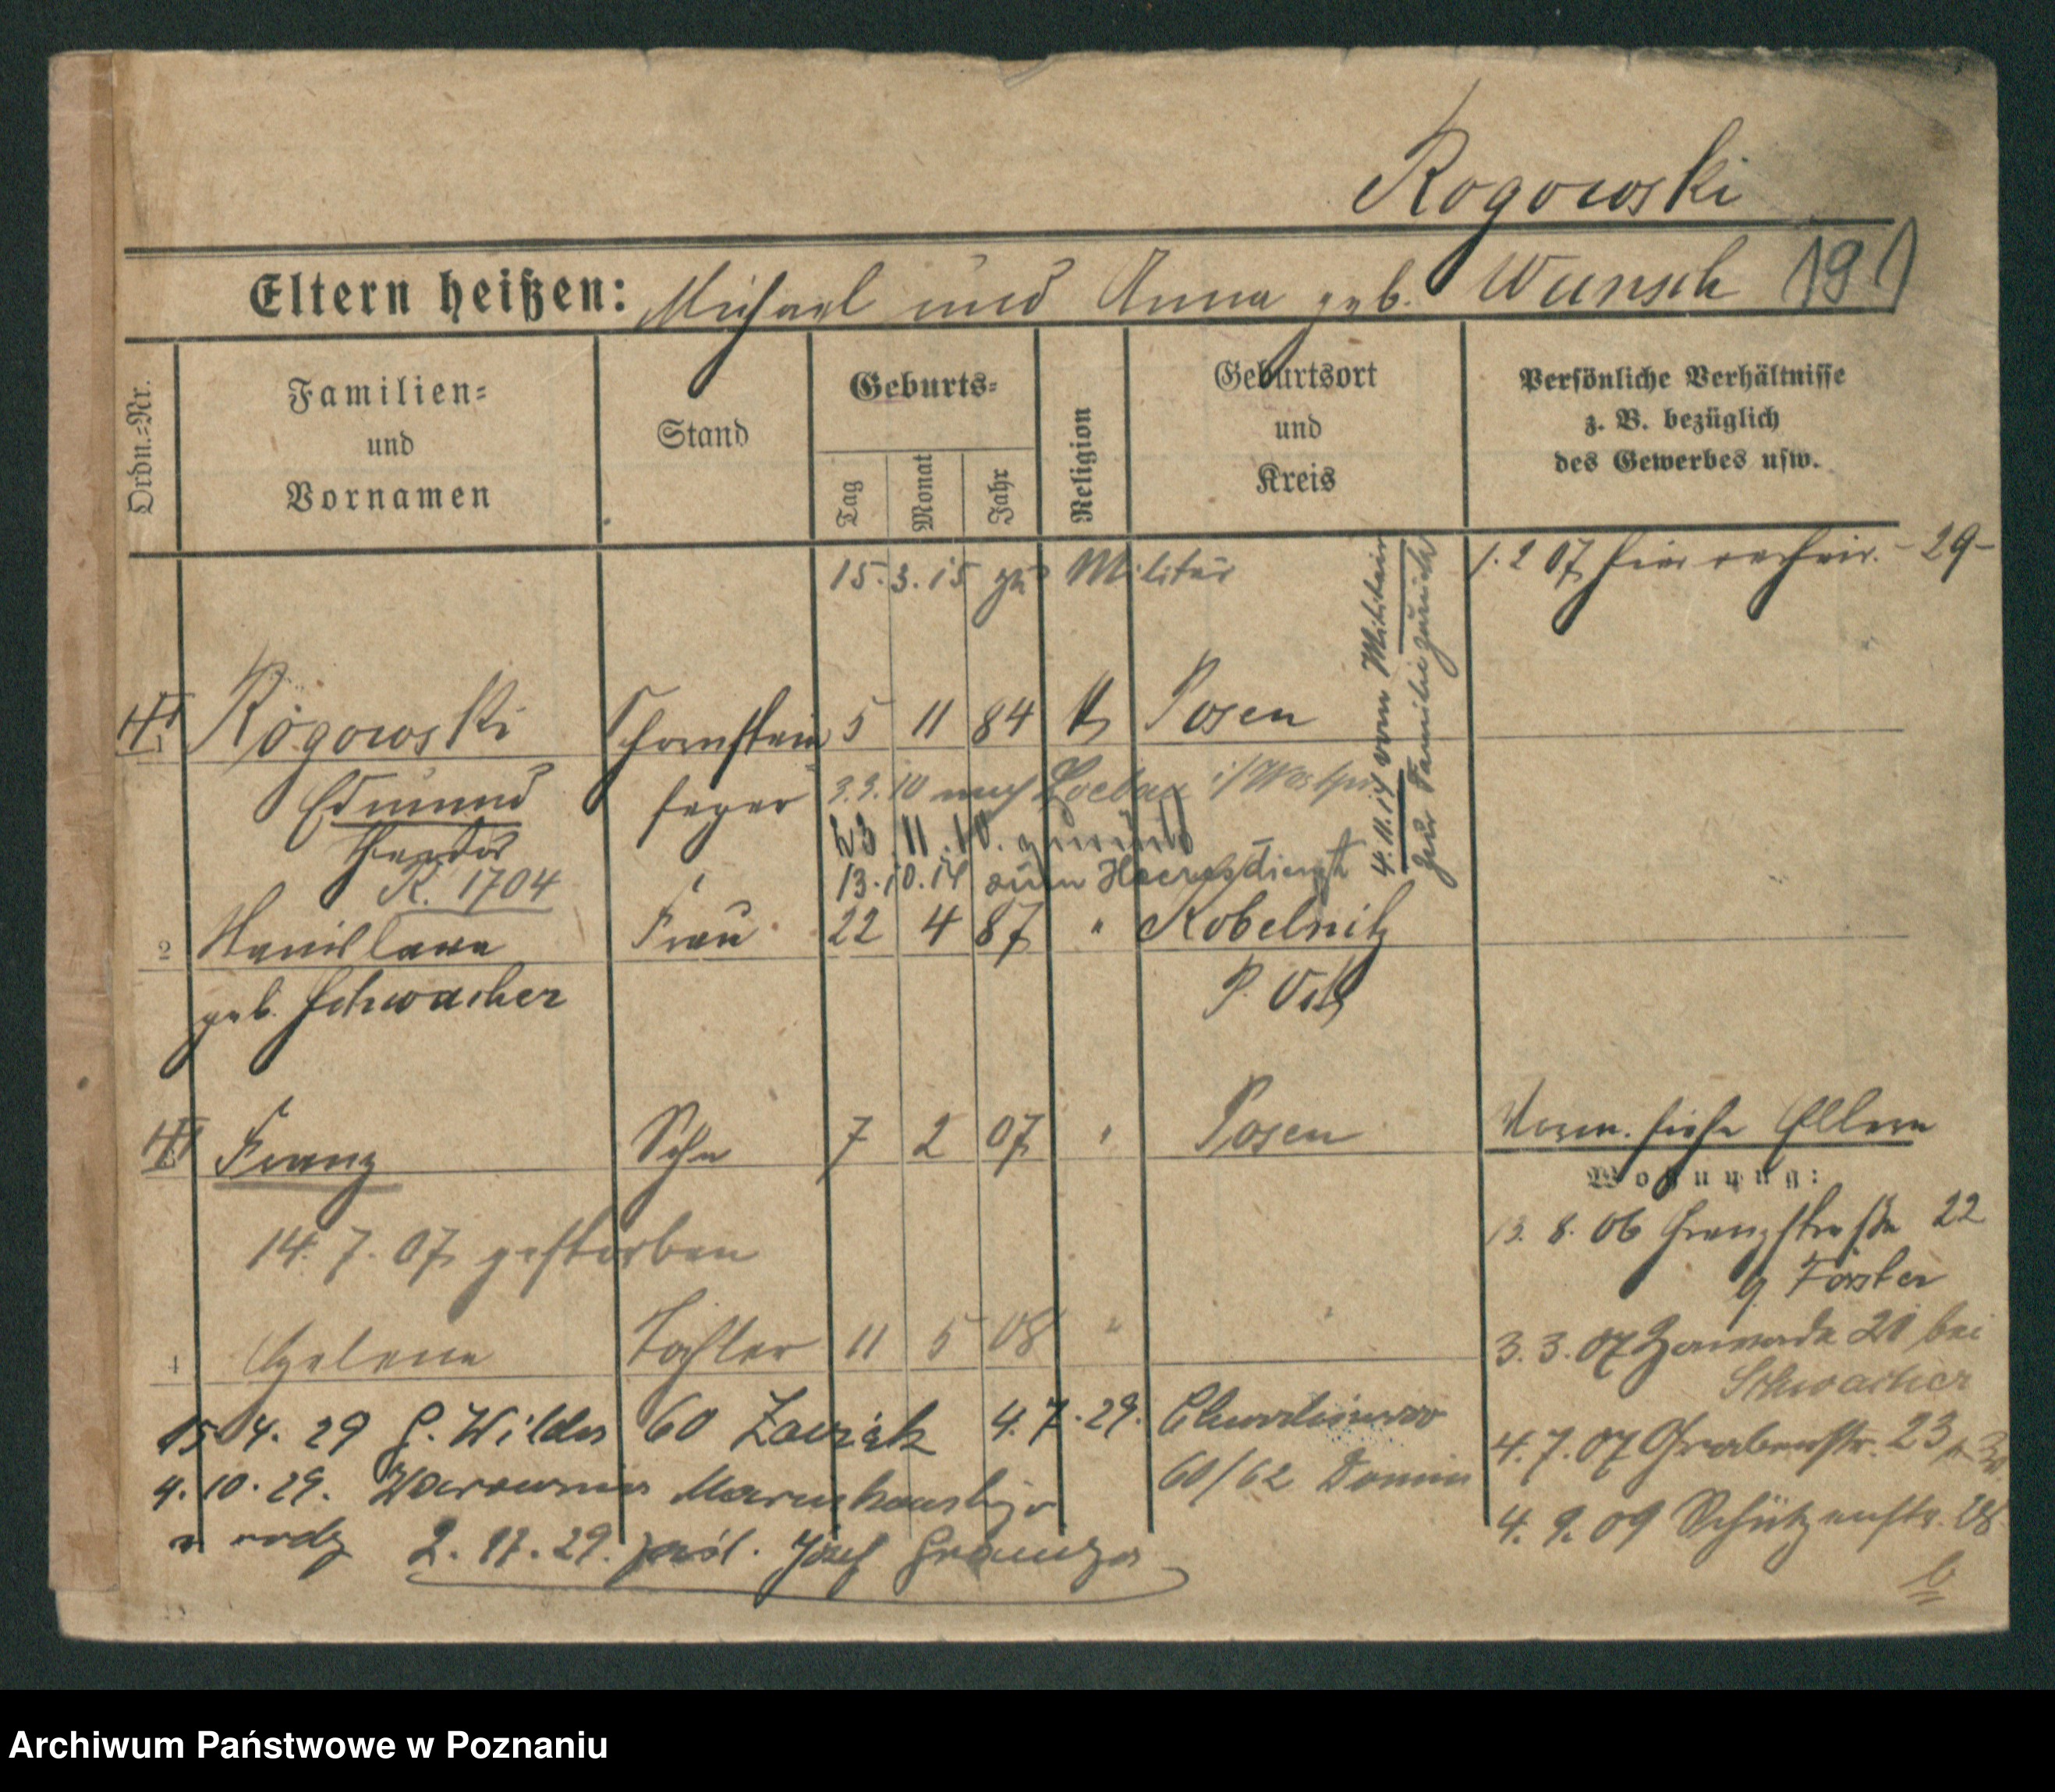 Rogowski
Eltern heißen: Michael und Anna geb. Wunsch 191
Ordn.=Nr.
Familien=
und
Vornamen
Stand
Geburts=
Tag
Monat
Jahr
Religion
Geburtsort
und
Kreis
Persönliche Verhältnisse
z. B. bezüglich
des Gewerbes usw.
15.3.15 zu Militär
4.11.17 vom Militair
zur Familie zurück
1.2 07 hier verheir. -29-
Rogowski Schornstein 5 11 84 k Posen
Edmund feger 3.3.10 nach Loebau i/Westpr
Theodor 23.11.10. zurück
R. 1704 13.10.14 zum Heeresdienst
2 Stanislawa Frau 22 4 87 " Kobelnitz
geb. Schwacher P. Ost
Franz Sohn 7 2 07 " Posen
Verm. siehe Eltern
Wohnung:
14.7.07 gestorben
13.8.06 Grenzstraße 22
Förster
4 Helene Tochter 11 5 08 " "
3.3.07 Zawade 20 bei
Schwacher
15 4.29 G. Wilda 60 4.7.29.
60/62
4.7.07 Grabenstr. 23
4.10.29.
4.9.09 Schützenstr. 28
b
2.12.29. Józef
Archiwum Państwowe w Poznaniu